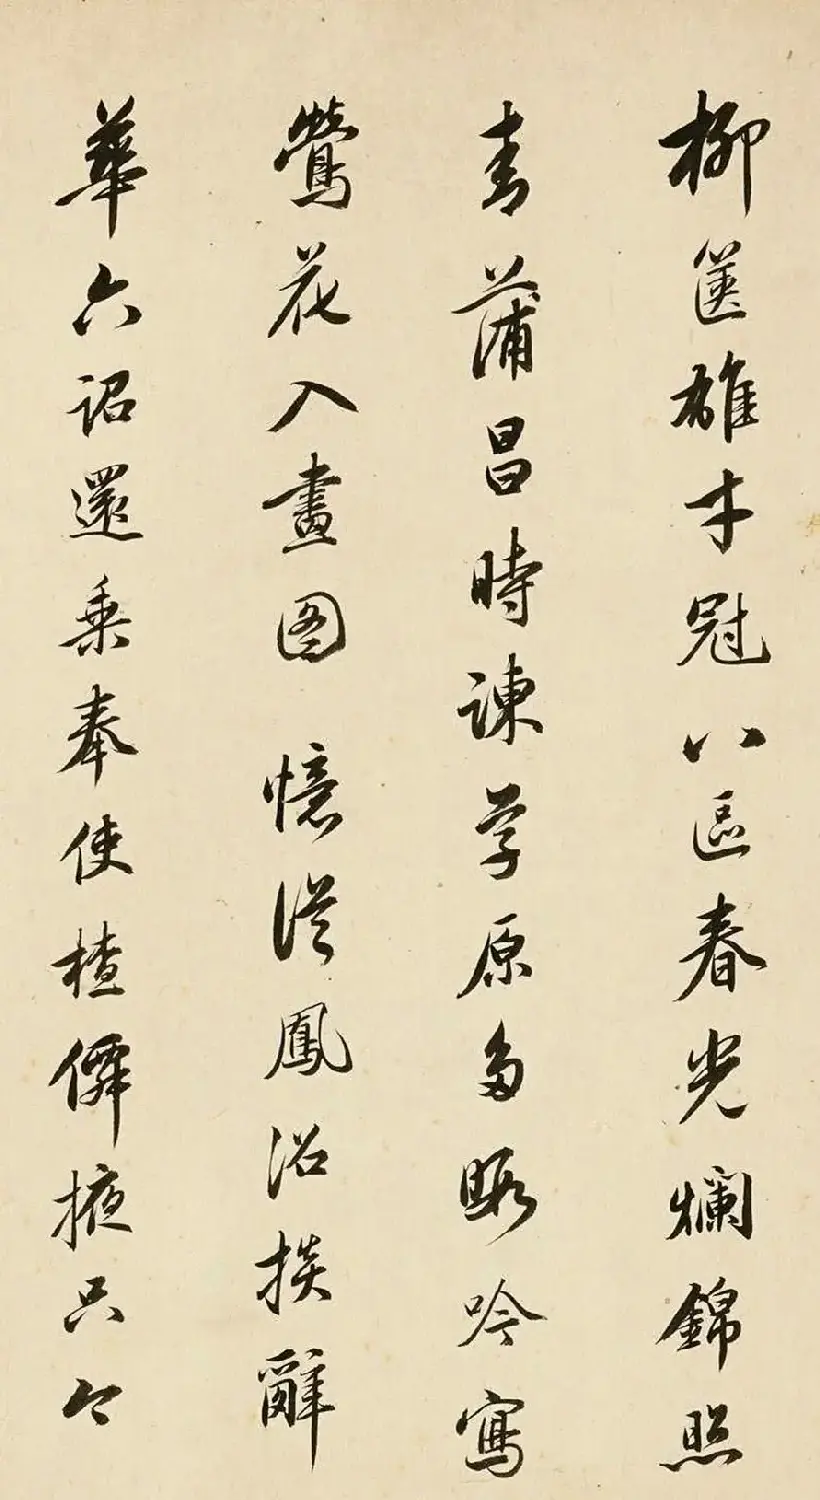 柳篋雄才冠八區春光爛錦照
青蒲昌時諫學原多暇吟寫
鶯花入畫圖 憶從鳳沼掞辭
華六詔還乘奉使槎僊掖只今